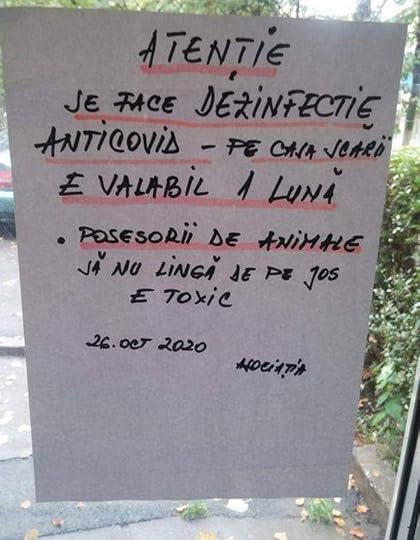 ATENȚIE
SE FACE DEZINFECTIE
ANTICOVID – PE CASA SCĂRII
E VALABIL 1 LUNĂ
• POSESORII DE ANIMALE
SĂ NU LINGĂ DE PE JOS
E TOXIC
26.OCT 2020
ASOCIAȚIA